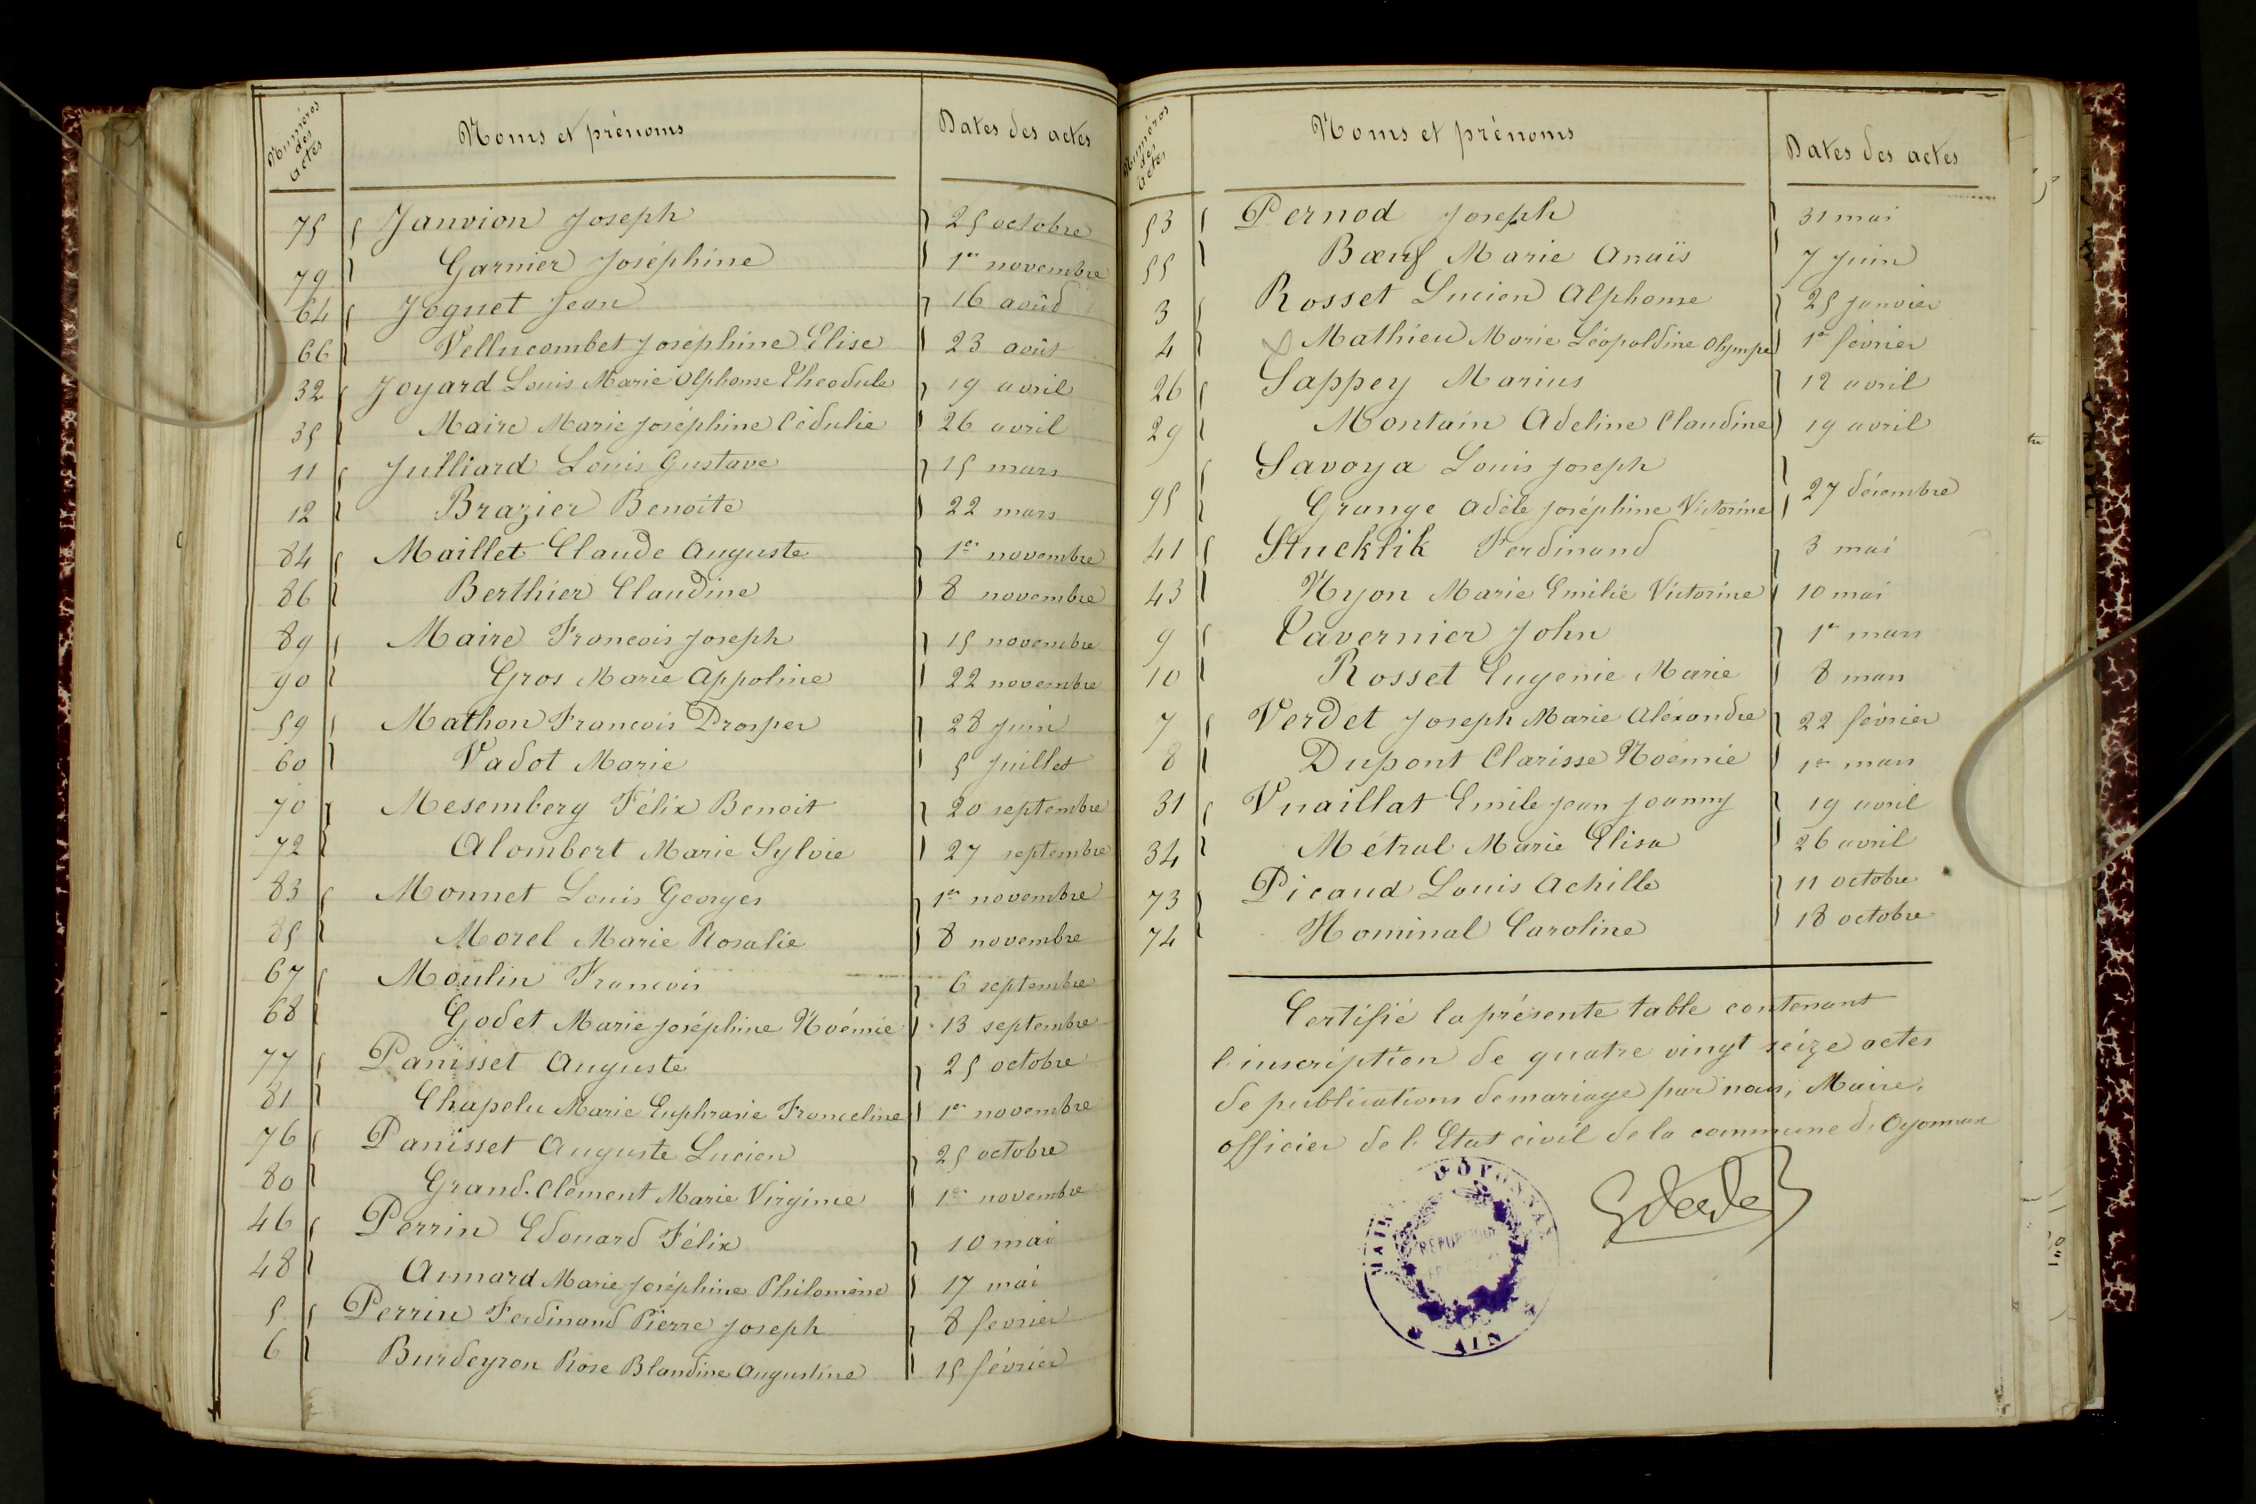 Numéros des actes Noms et prénoms Dates des actes
75 Janvion Joseph 25 octobre
79 Garnier Joséphine 1er novembre
64 Joguet Jean 16 août
66 Vellucombet Joséphine Elise 23 août
32 Joyard Louis Marie Alphonse Théodule 19 avril
35 Maire Marie Joséphine Cédulie 26 avril
11 Julliard Louis Gustave 15 mars
12 Brazier Benoite 22 mars
84 Maillet Claude Auguste 1er novembre
86 Berthier Claudine 8 novembre
89 Maire Francois Joseph 15 novembre
90 Gros Marie Appoline 22 novembre
59 Mathon Francois Prosper 28 Juin
60 Vadot Marie 5 Juillet
70 Mesemberg Félix Benoit 20 septembre
72 Alombert Marie Sylvie 27 septembre
83 Monnet Louis Georges 1er novembre
85 Morel Marie Rosalie 8 novembre
67 Moulin Francois 6 septembre
68 Godet Marie Joséphine Noémie 13 septembre
77 Panisset Auguste 25 octobre
81 Chapelu Marie Euphrasie Franceline 1er novembre
76 Panisset Auguste Lucien 25 octobre
80 Grand-Clément Marie Virginie 1er novembre
46 Perrin Edouard Félix 10 mai
48 Annard Marie Joséphine Philomène 17 mai
5 Perrin Ferdinand Pierre Joseph 8 fevrier
6 Burdeyron Rose Blandine Augustine 15 février
Numéros des actes Noms et prénoms Dates des actes
53 Pernod Joseph 31 mai
55 Bœuf Marie Anaïs 7 Juin
3 Rosset Lucien Alphonse 25 janvier
4 Mathieu Marie Léopoldine Olympe 1er février
26 Sappey Marius 12 avril
29 Montain Adeline Claudine 19 avril
Savoya Louis Joseph
95 Grange Adèle Joséphine Victorine 27 décembre
41 Stucklik Ferdinand 3 mai
43 Nyon Marie Emilie Victorine 10 mai
9 Tavernier John 1er mars
10 Rosset Eugenie Marie 8 mars
7 Verdet Joseph Marie Aléxandre 22 février
8 Dupont Clarisse Noémie 1er mars
31 Vuaillat Emile Jean Joanny 19 avril
34 Métral Marie Elisa 26 avril
73 Picaud Louis Achille 11 octobre
74 Nominal Caroline 18 octobre
Certifié la présente table contenant
l'inscription de quatre vingt seize actes
de publications de mariage par nous, Maire,
officier de l'Etat civil de la commune d'Oyonnax
MAIRIE D'OYONNAX
AIN